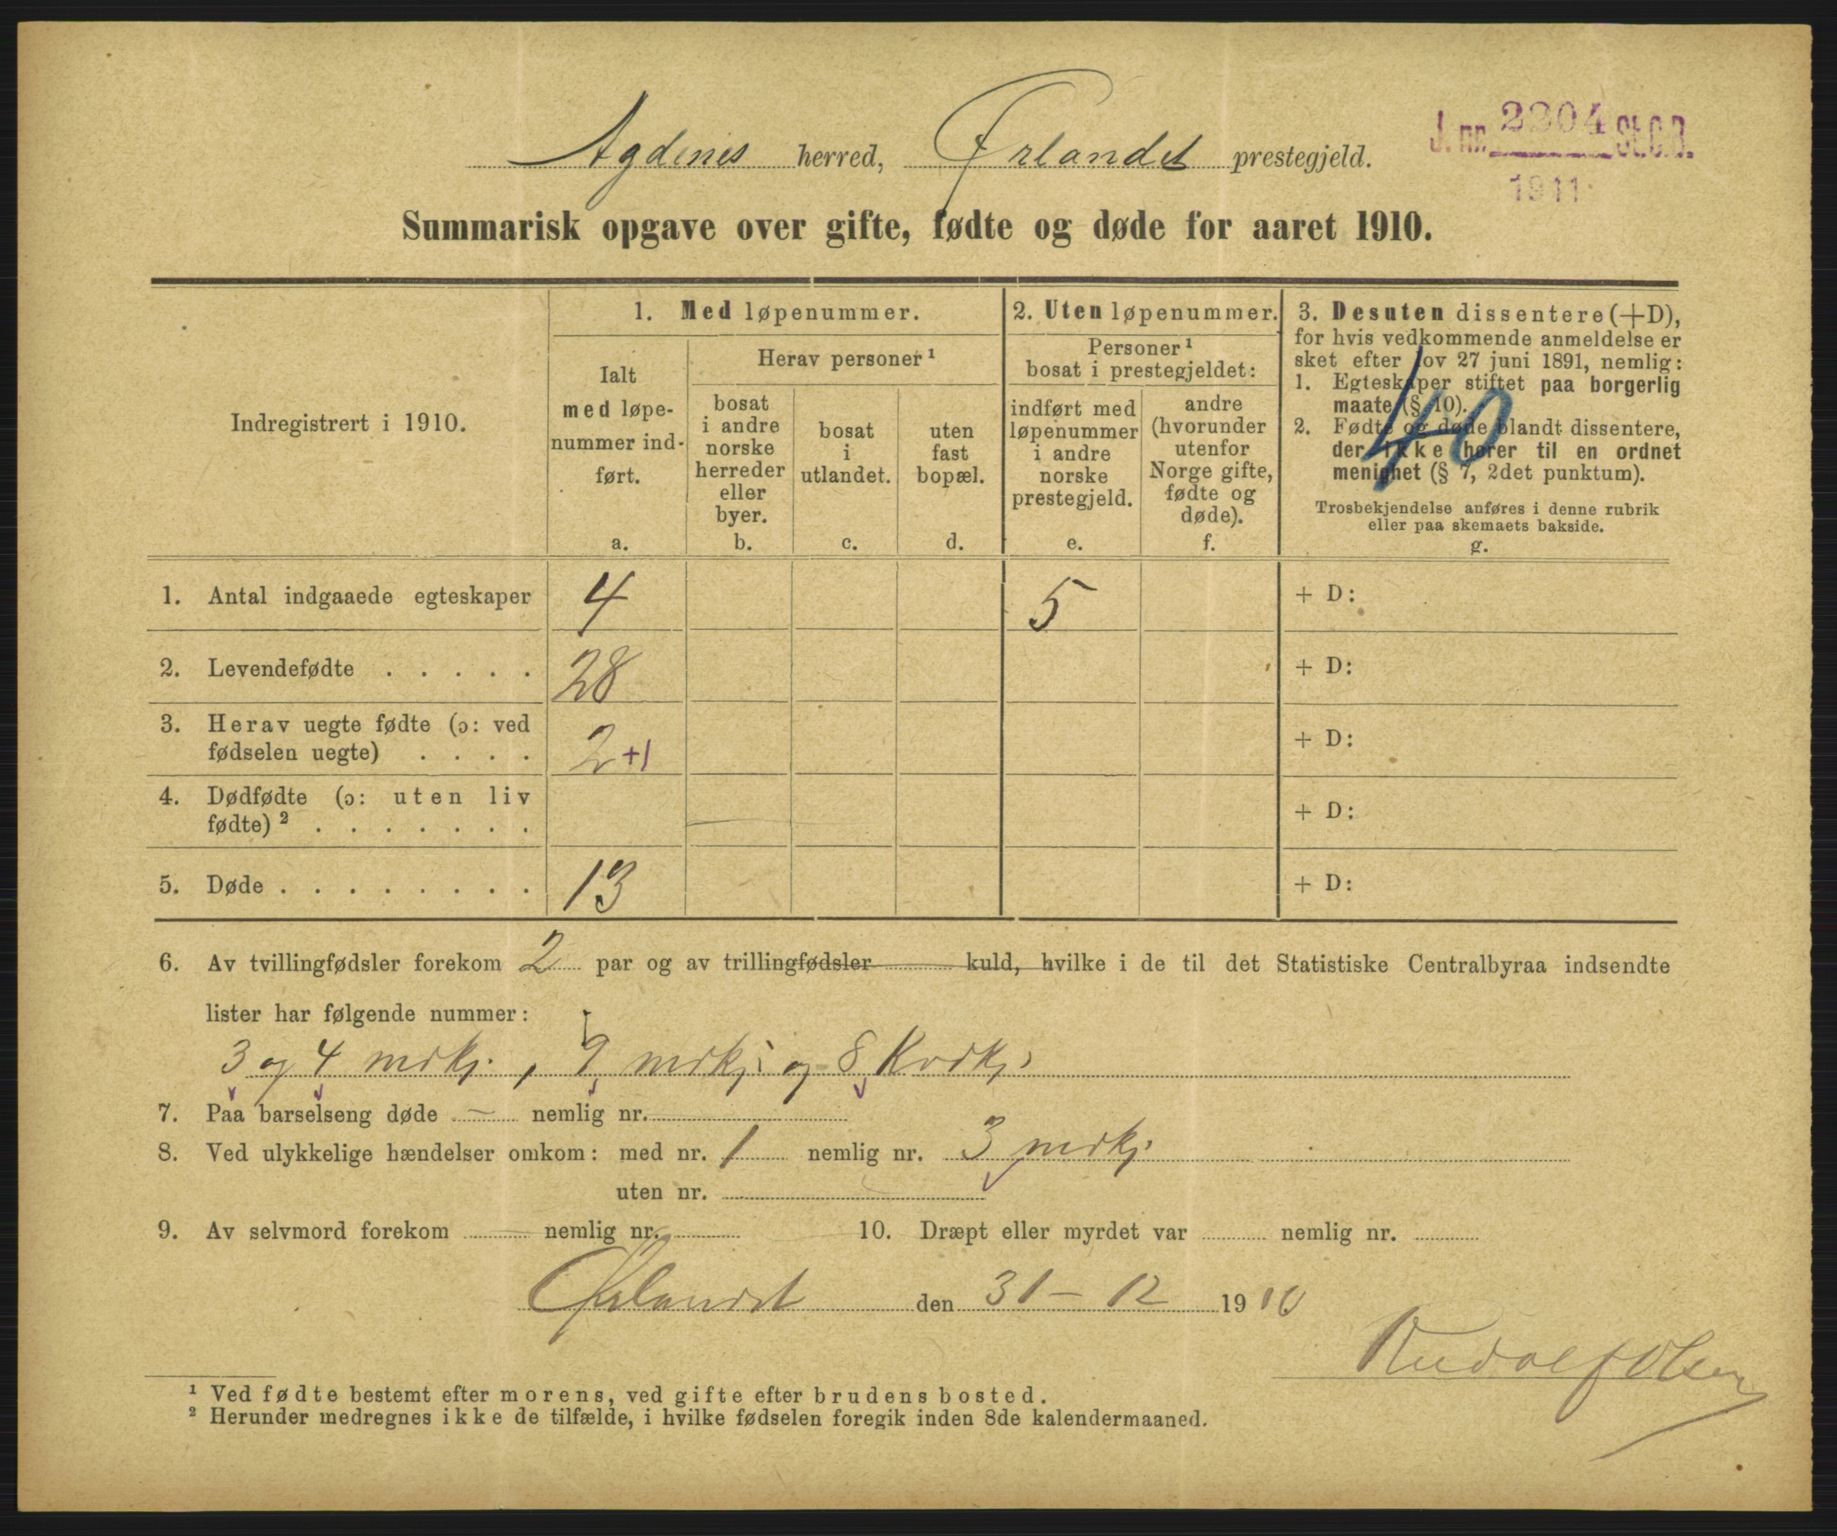 Agdenes herred, Ørlandet prestegjeld.
J. nr. 2204 St.C.B.
1911
Summarisk opgave over gifte, fødte og døde for aaret 1910.
Indregistrert i 1910.
1. Med løpenummer.
Ialt
med løpe-
nummer ind-
ført.
a.
Herav personer¹
bosat
i andre
norske
herreder
eller
byer.
b.
bosat
i
utlandet.
c.
uten
fast
bopæl.
d.
2. Uten løpenummer.
Personer¹
bosat i prestegjeldet:
indført med
løpenummer
i andre
norske
prestegjeld.
e.
andre
(hvorunder
utenfor
Norge gifte,
fødte og
døde).
f.
3. Desuten dissentere (+D),
for hvis vedkommende anmeldelse er
sket efter lov 27 juni 1891, nemlig:
1. Egteskaper stiftet paa borgerlig
maate (§ 10).
2. Fødte og døde blandt dissentere,
der ikke hører til en ordnet
menighet (§ 7, 2det punktum).
Trosbekjendelse anføres i denne rubrik
eller paa skemaets bakside.
g.
40
1. Antal indgaaede egteskaper 4 5 + D:
2. Levendefødte . . . . . 28 + D:
3. Herav uegte fødte (ɔ: ved
fødselen uegte) . . . . 2 +1 + D:
4. Dødfødte (ɔ: uten liv
fødte)² . . . . . . . + D:
5. Døde . . . . . . . . 13 + D:
6. Av tvillingfødsler forekom 2 par og av trillingfødsler kuld, hvilke i de til det Statistiske Centralbyraa indsendte
lister har følgende nummer:
3 og 4 mdkj. , 9 mdkj. og 8 Kvdkj.
7. Paa barselseng døde — nemlig nr.
8. Ved ulykkelige hændelser omkom: med nr. 1 nemlig nr. 3 mdkj.
uten nr.
9. Av selvmord forekom — nemlig nr. 10. Dræpt eller myrdet var nemlig nr.
Ørlandet den 31 – 12 1910
Rudolf Olsen
¹ Ved fødte bestemt efter morens, ved gifte efter brudens bosted.
² Herunder medregnes ikke de tilfælde, i hvilke fødselen foregik inden 8de kalendermaaned.